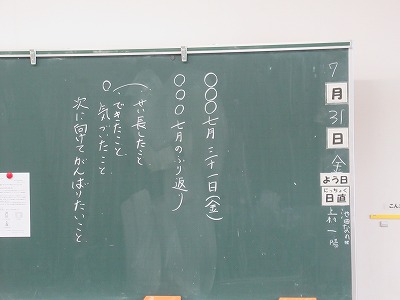 7月31日金よう日
にっちょく
日直
〇〇〇七月三十一日(金)
〇〇〇七月のふり返り
せい長したこと
できたこと
〇気づいたこと
次に向けてがんばりたいこと